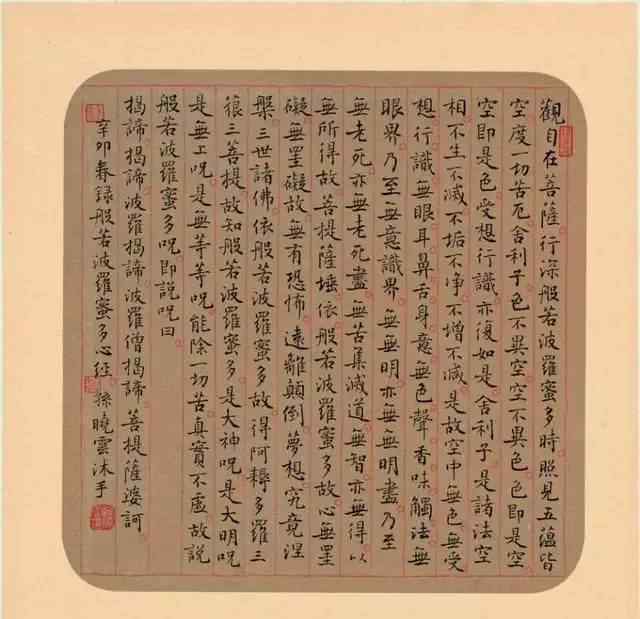 觀自在菩薩行深般若波羅蜜多時照見五蘊皆
空度一切苦厄舍利子色不異空空不異色色即是空
空即是色受想行識亦復如是舍利子是諸法空
相不生不滅不垢不净不增不滅是故空中無色無受
想行識無眼耳鼻舌身意無色聲香味觸法無
眼界乃至無意識界無無明亦無無明盡乃至
無老死亦無老死盡無苦集滅道無智亦無得以
無所得故菩提薩埵依般若波羅蜜多故心無罣
礙無罣礙故無有恐怖遠離顛倒夢想究竟涅
槃三世諸佛依般若波羅蜜多故得阿耨多羅三
藐三菩提故知般若波羅蜜多是大神呪是大明呪
是無上呪是無等等呪能除一切苦真實不虛故説
般若波羅蜜多呪即説呪曰
揭諦揭諦波羅揭諦波羅僧揭諦菩提薩婆訶
辛卯春録般若波羅蜜多心經孫曉雲沐手